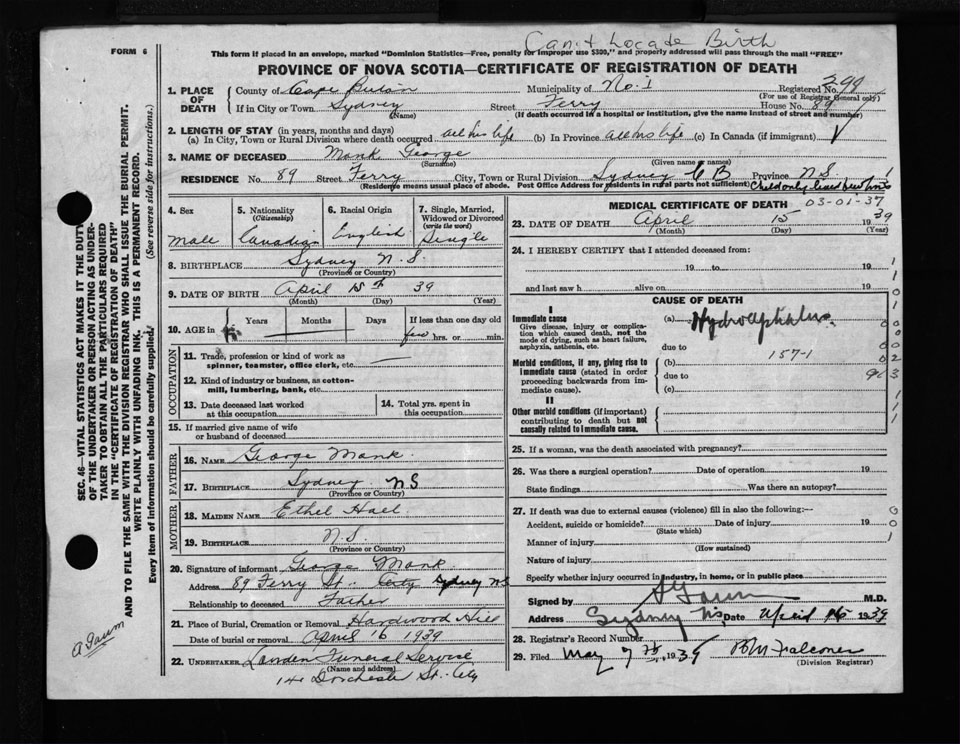 Can't Locate Birth
FORM 6
This form if placed in an envelope, marked "Dominion Statistics—Free, penalty for improper use $300," and properly addressed will pass through the mail "FREE"
PROVINCE OF NOVA SCOTIA—CERTIFICATE OF REGISTRATION OF DEATH
1. PLACE OF DEATH
County of Cape Breton Municipality of No. 1 Registered No. 290
(For use of Registrar General only)
If in City or Town Sydney Street Ferry House No. 89
(Name) (If death occurred in a hospital or institution, give the name instead of street and number)
2. LENGTH OF STAY (in years, months and days)
(a) In City, Town or Rural Division where death occurred all his life (b) In Province all his life (c) In Canada (if immigrant)
3. NAME OF DECEASED Mank George
(Surname) (Given name or names)
RESIDENCE No. 89 Street Ferry City, Town or Rural Division Sydney C B Province N.S.
(Residence means usual place of abode. Post Office Address for residents in rural parts not sufficient) Child only lived few
4. Sex Male
5. Nationality (Citizenship) Canadian
6. Racial Origin English
7. Single, Married, Widowed or Divorced (write the word) Single
8. BIRTHPLACE Sydney N.S.
(Province or Country)
9. DATE OF BIRTH April 15th 39
(Month) (Day) (Year)
10. AGE in Years Months Days If less than one day old
few hrs. or min.
OCCUPATION
11. Trade, profession or kind of work as spinner, teamster, office clerk, etc.
12. Kind of industry or business, as cotton-mill, lumbering, bank, etc.
13. Date deceased last worked at this occupation
14. Total yrs. spent in this occupation
15. If married give name of wife or husband of deceased
FATHER
16. NAME George Mank
17. BIRTHPLACE Sydney N S
(Province or Country)
MOTHER
18. MAIDEN NAME Ethel Hall
19. BIRTHPLACE N.S.
(Province or Country)
20. Signature of informant George Mank
Address 89 Ferry St. City Sydney NS
Relationship to deceased Father
21. Place of Burial, Cremation or Removal Hardwood Hill
Date of burial or removal April 16 1939
22. UNDERTAKER Funeral Service
(Name and address)
14 Dorchester St. City
MEDICAL CERTIFICATE OF DEATH 03-01-37
23. DATE OF DEATH April 15 1939
(Month) (Day) (Year)
24. I HEREBY CERTIFY that I attended deceased from:
19 to 19
and last saw h alive on 19
CAUSE OF DEATH
I
Immediate cause
Give disease, injury or complication which caused death, not the mode of dying, such as heart failure, asphyxia, asthenia, etc.
(a) Hydrocephalus
due to
Morbid conditions, if any, giving rise to immediate cause (stated in order proceeding backwards from immediate cause).
(b) 157-1
due to
(c)
II
Other morbid conditions (if important) contributing to death but not causally related to immediate cause.
25. If a woman, was the death associated with pregnancy?
26. Was there a surgical operation? Date of operation 19
State findings Was there an autopsy?
27. If death was due to external causes (violence) fill in also the following:—
Accident, suicide or homicide? Date of injury 19
(State which)
Manner of injury
(How sustained)
Nature of injury
Specify whether injury occurred in industry, in home, or in public place
Signed by M.D.
Address Sydney NS Date April 16 1939
28. Registrar's Record Number
29. Filed May 7th 1939 Falconer
(Division Registrar)
SEC. 46—VITAL STATISTICS ACT MAKES IT THE DUTY
OF THE UNDERTAKER OR PERSON ACTING AS UNDER-
TAKER TO OBTAIN ALL THE PARTICULARS REQUIRED
IN THE "CERTIFICATE OF REGISTRATION OF DEATH"
AND TO FILE THE SAME WITH THE DIVISION REGISTRAR WHO SHALL ISSUE THE BURIAL PERMIT.
WRITE PLAINLY WITH UNFADING INK. THIS IS A PERMANENT RECORD.
Every item of information should be carefully supplied. (See reverse side for instructions.)